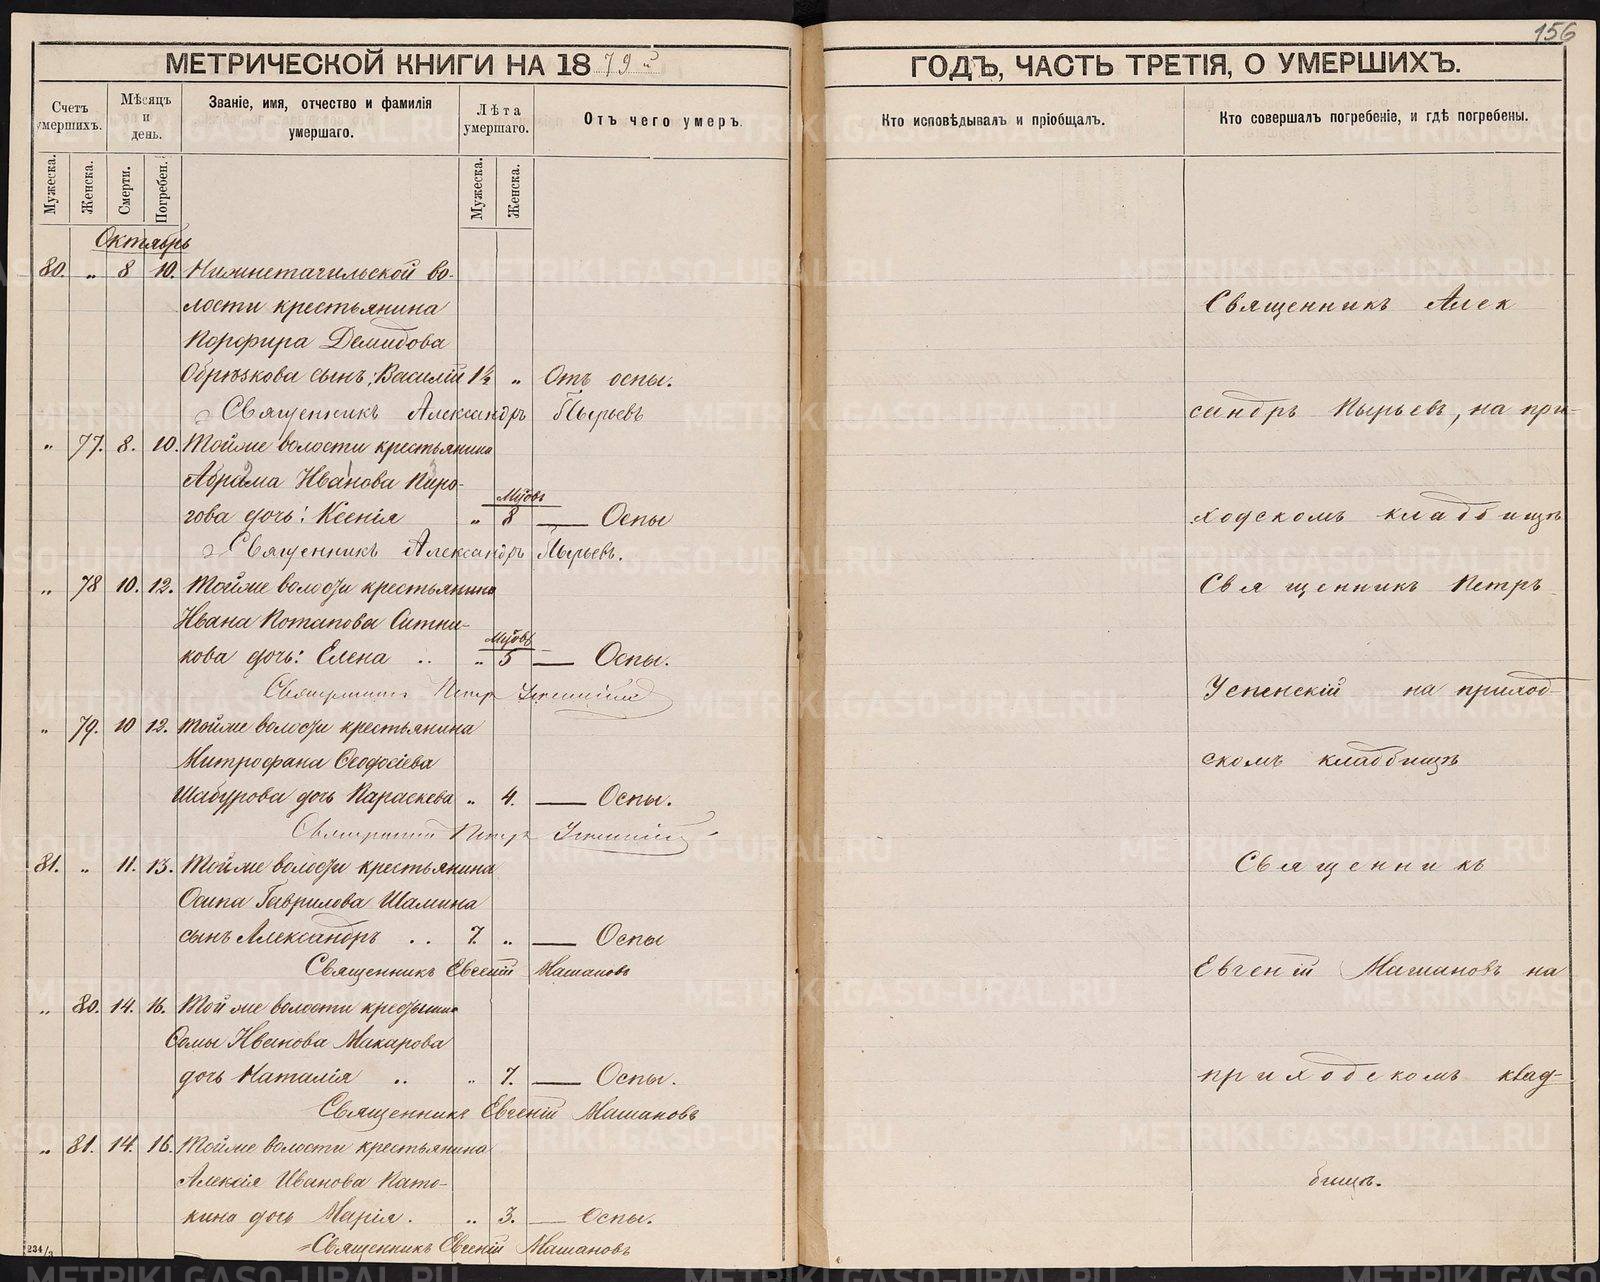 156
МЕТРИЧЕСКОЙ КНИГИ НА 1879й
ГОДЪ, ЧАСТЬ ТРЕТІЯ, О УМЕРШИХЪ.
Счетъ умершихъ.
Мѣсяцъ и день.
Званіе, имя, отчество и фамилія умершаго.
Лѣта умершаго.
Отъ чего умеръ.
Кто исповѣдывалъ и пріобщалъ.
Кто совершалъ погребеніе, и гдѣ погребены.
Мужеска.
Женска.
Смерти.
Погребен.
Мужеска.
Женска.
Октябрь
80. „ 8 10. Нижнетагильской во-
лости крестьянина
Порфира Демидова
Обрѣзкова сынъ: Василій 1½ „ Отъ оспы.
Священникъ Александръ Пырьевъ
„ 77. 8. 10. Тойже волости крестьянина
Абрама Иванова Пиро-
гова дочь: Ксенія „ Мцовъ 8 — Оспы
Священникъ Александръ Пырьевъ.
„ 78 10. 12. Тойже волости крестьянина
Ивана Потапова Ситни-
кова дочь: Елена .. „ Мцовъ 5 — Оспы.
Священникъ Петръ Успенскій
„ 79. 10 12. Тойже волости крестьянина
Митрофана Ѳеодосіева
Шабурова дочь Параскева „ 4. — Оспы.
Священникъ Петръ Успенскій
81. „ 11. 13. Тойже волости крестьянина
Осипа Гаврилова Шамина
сынъ Александръ .. 7. „ — Оспы
Священникъ Евгеній Машановъ
„ 80. 14. 16. Той же волости крестьянина
Ѳомы Иванова Макарова
дочь Наталія .. „ 7. — Оспы.
Священникъ Евгеній Машановъ
„ 81. 14. 16. Тойже волости крестьянина
Алексія Иванова Пато-
кина дочь Марія. „ 3. — Оспы.
Священникъ Евгеній Машановъ
234/3
Священникъ Алек
сандръ Пырьевъ, на при-
ходскомъ кладбищѣ
Священникъ Петръ
Успенскій на приход-
скомъ кладбищѣ
Священникъ
Евгеній Машановъ на
приходскомъ клад-
бищѣ.
METRIKI.GASO-URAL.RU